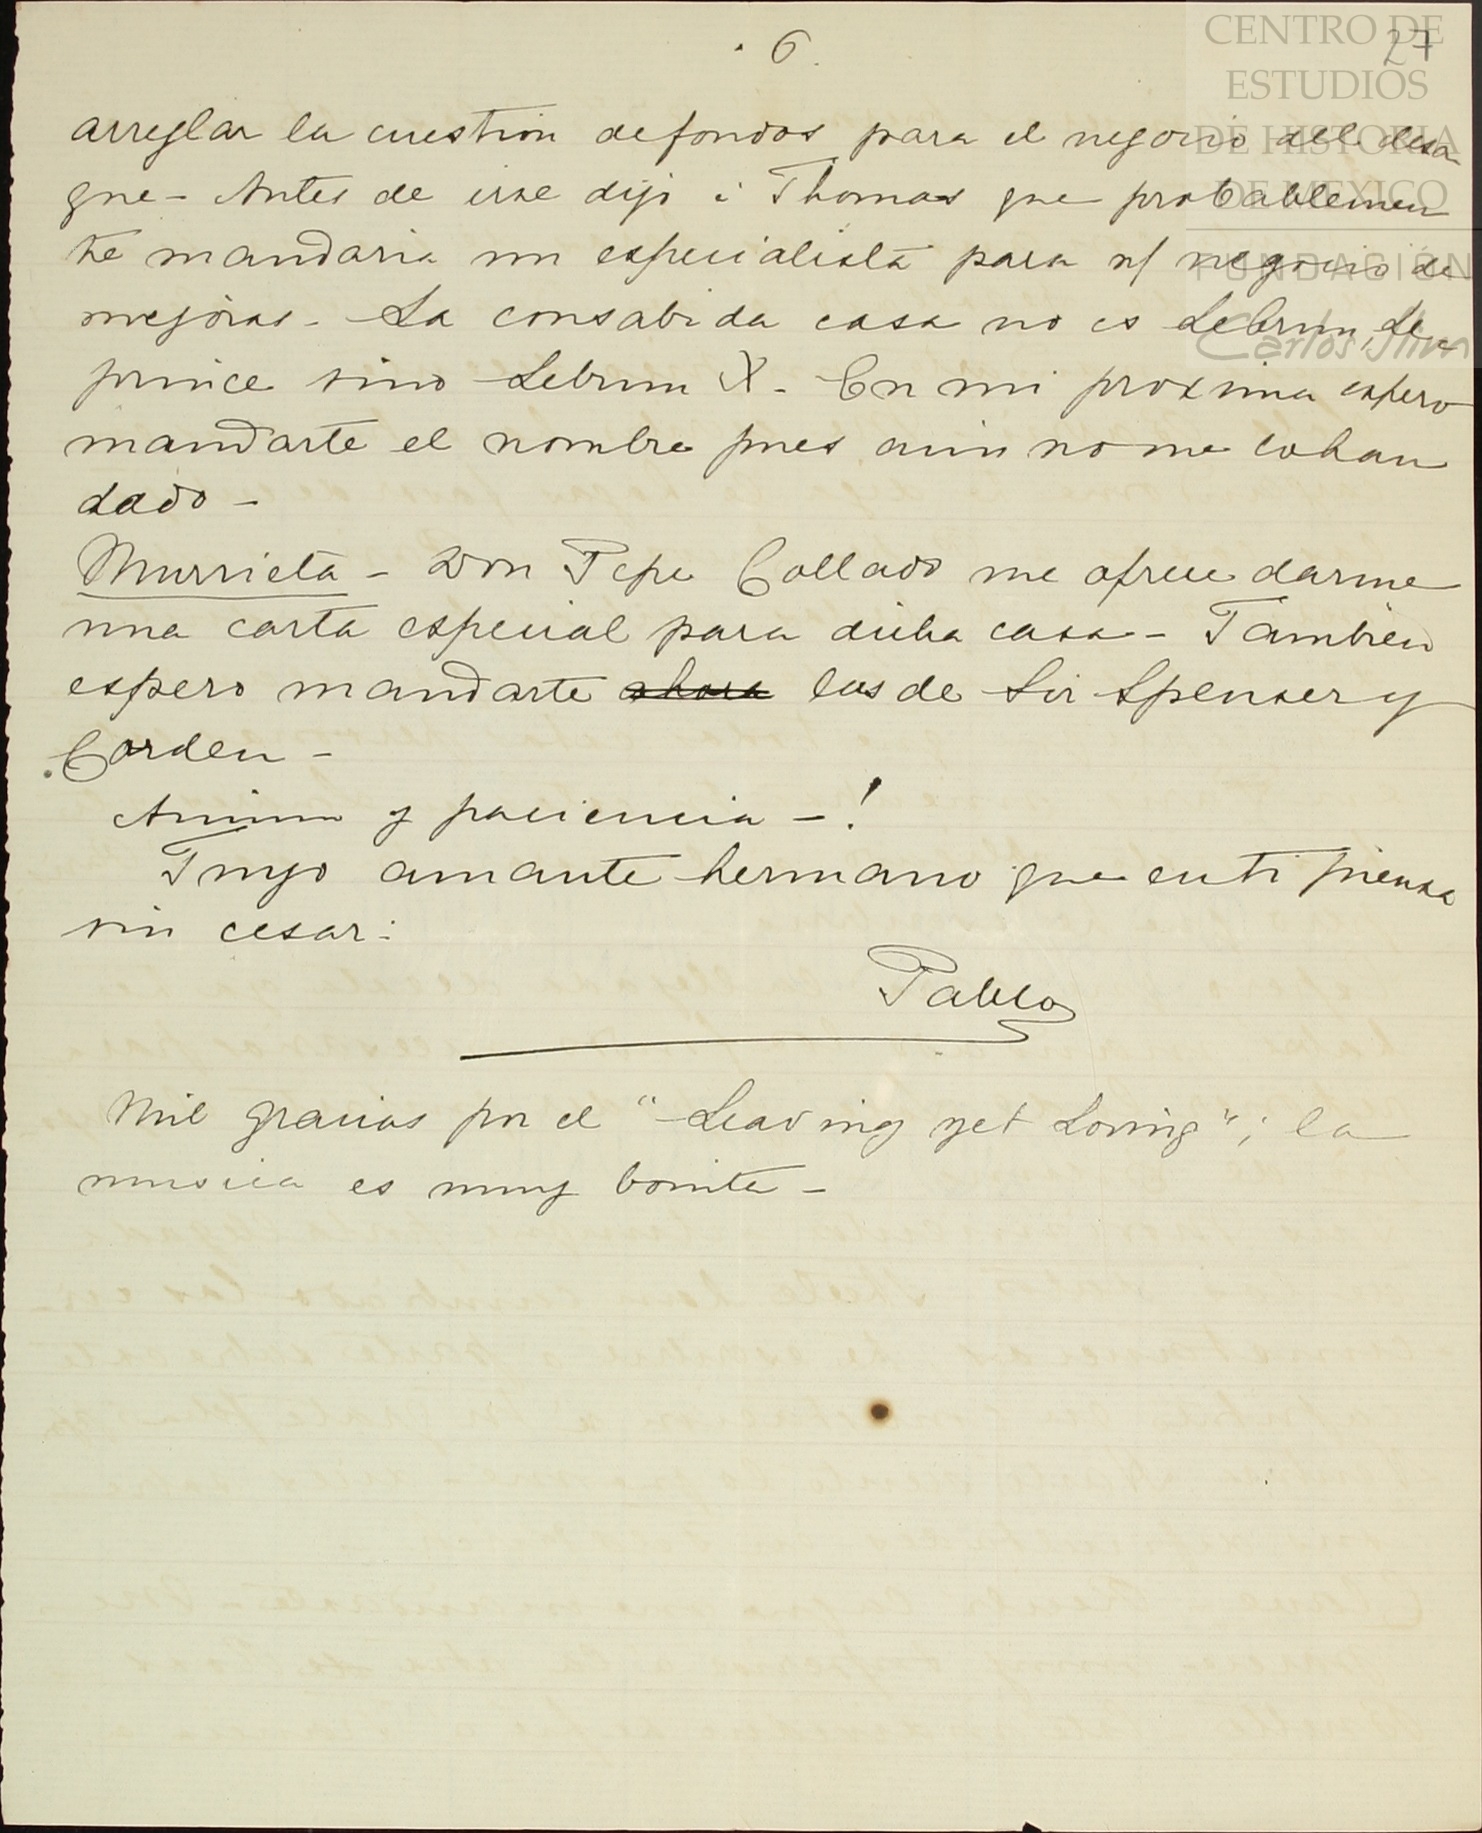 6.
27
CENTRO DE
ESTUDIOS
DE HISTORIA
DE MEXICO
FUNDACIÓN
Carlos Slim
arreglar la cuestion de fondos para el negocio del desa-
gue- Antes de irse dijo á Thomas que probablemen
te mandaria un especialista para n/ negocio de
mejoras- La consabida casa no es Lebrun, Le
prince sino Lebrun X- En mi proxima espero
mandarte el nombre pues aun no me lo han
dado-
Murrieta- Don Pepe Collado me ofrece darme
una carta especial para dicha casa- Tambien
espero mandarte ahora las de Sir Spenser y
Corden-
Animo y paciencia-!
Tuyo amante hermano que en ti piensa
sin cesar:
Pablo
Mil gracias por el "Leaving yet Loving"; la
musica es muy bonita-